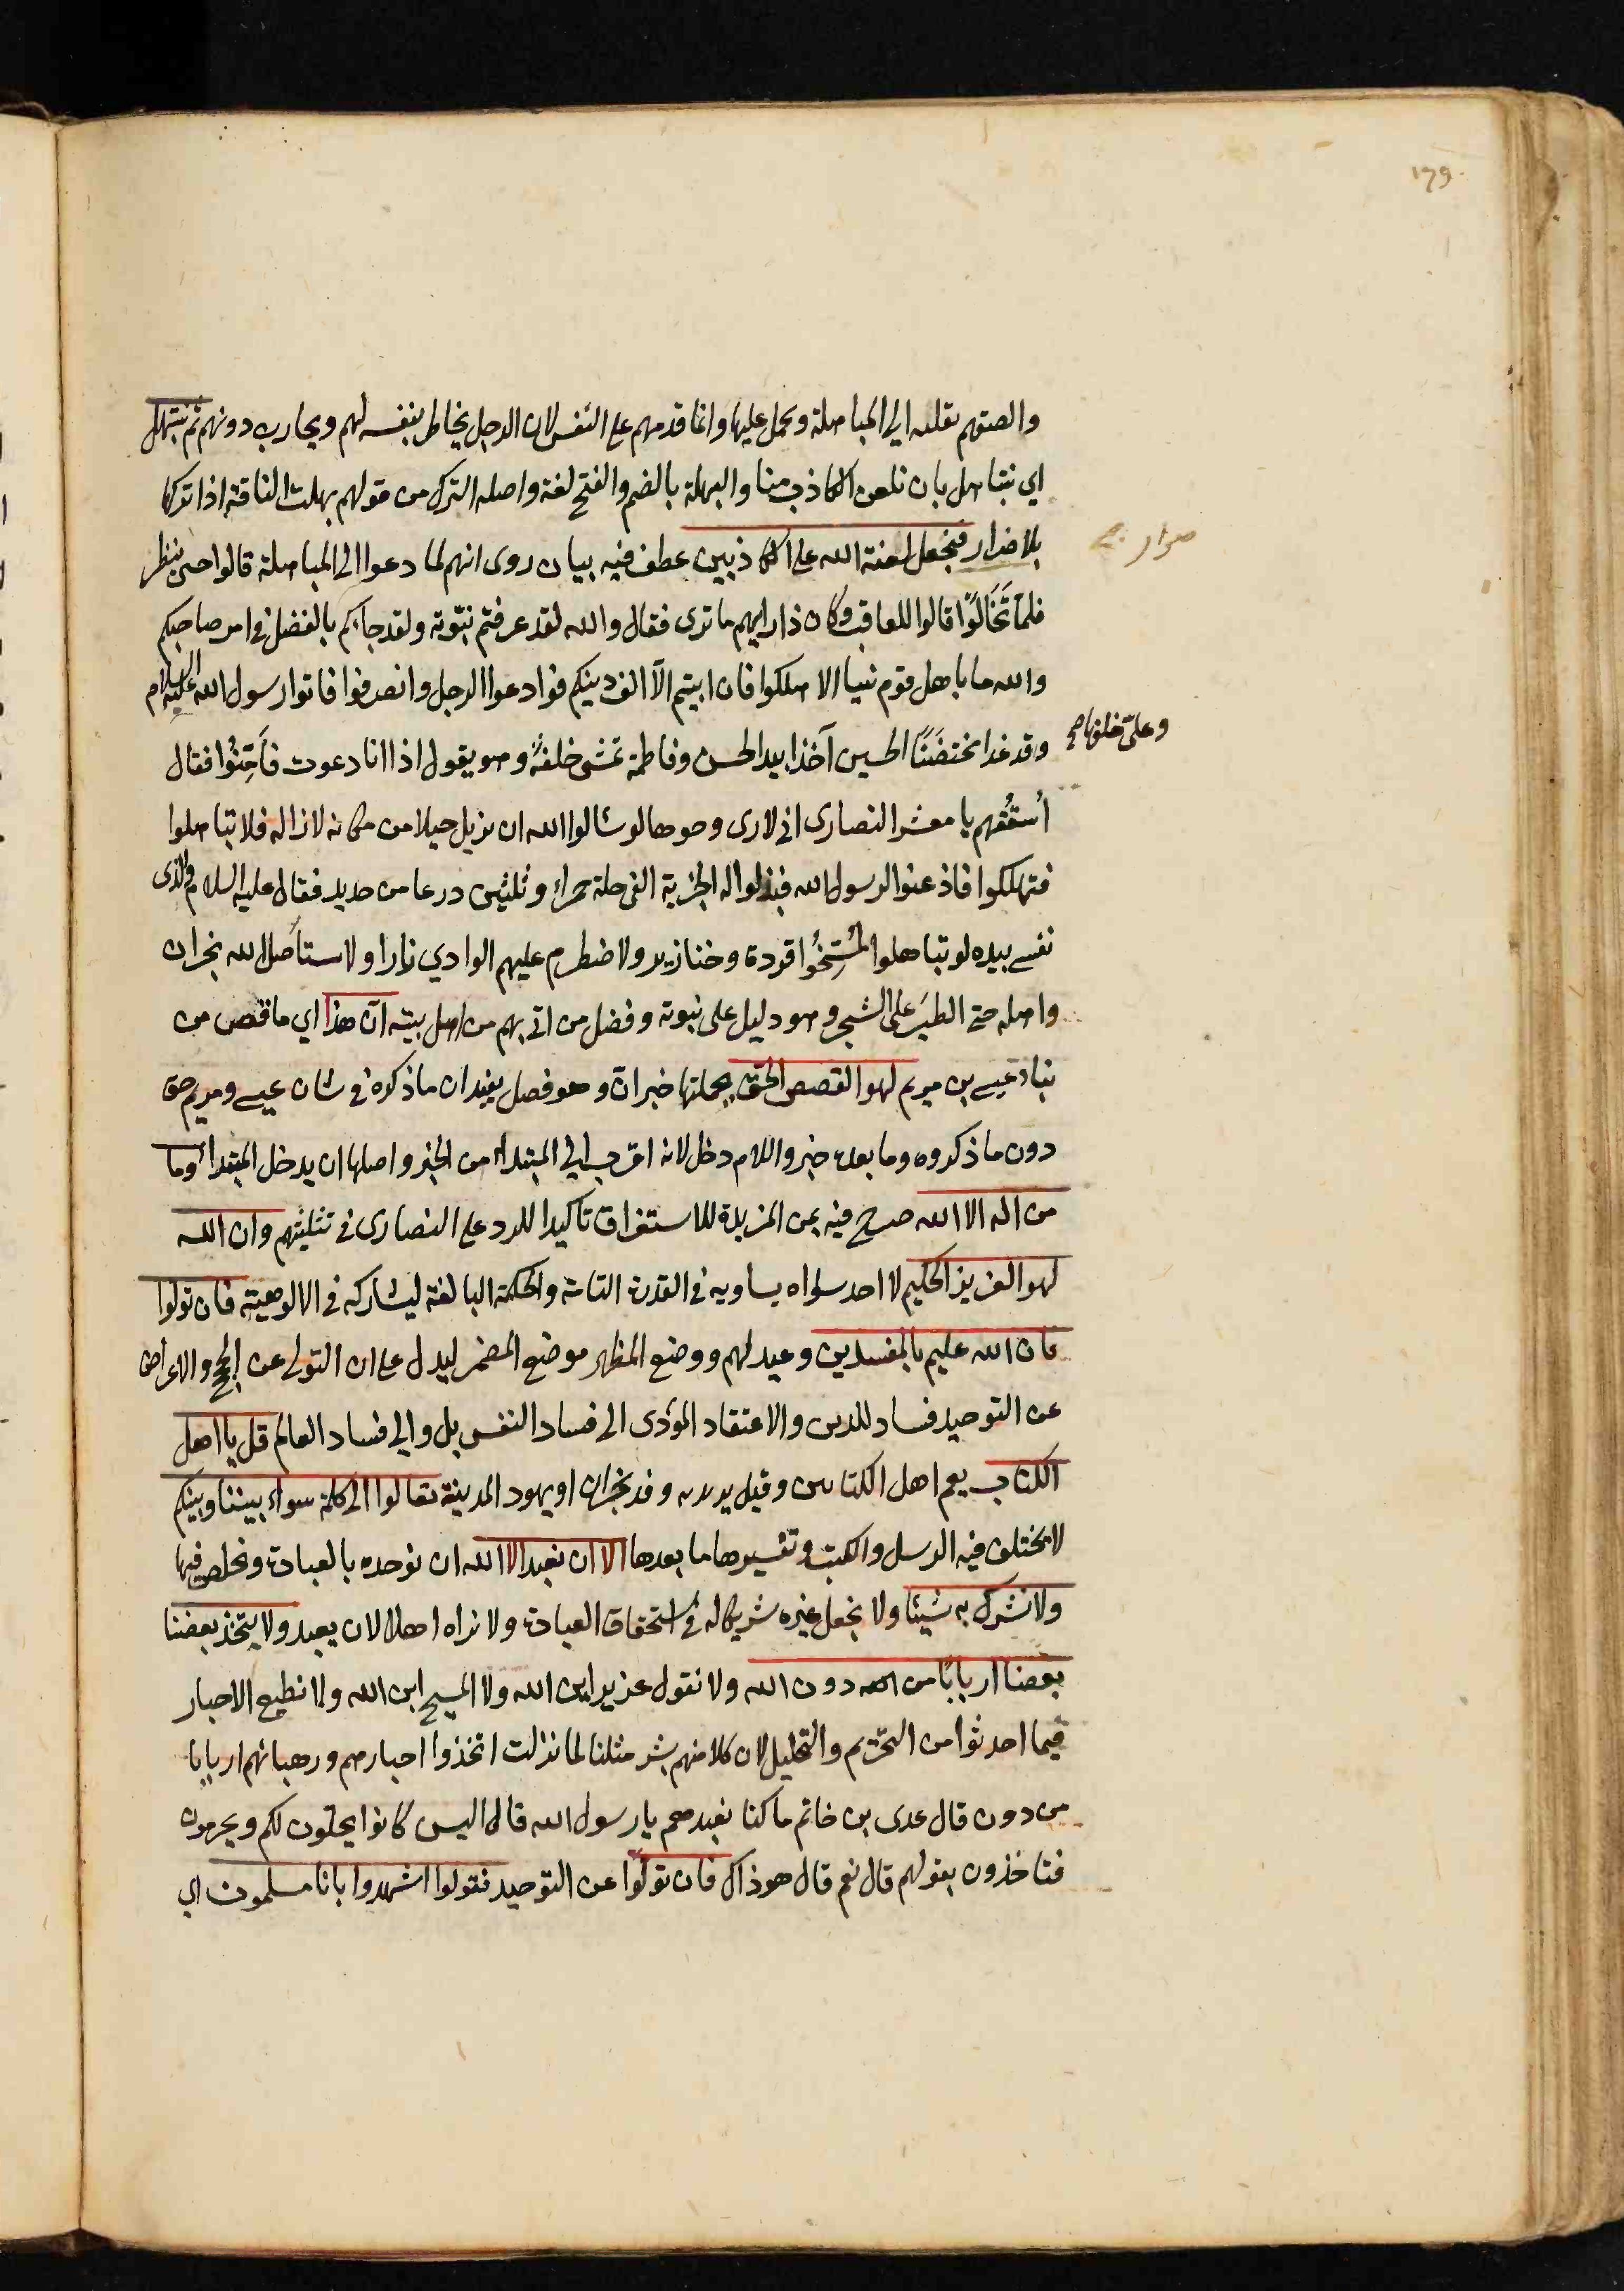 179
والصقهم بقلبه الى المباهلة ويحمل عليها وانما قدمهم على النفس لان الرجل يخاطر بنفسه لهم ويحارب دونهم ثم نبتهل
اي نتباهل بان نلعن الكاذب منا والبهلة بالضم والفتح لغة واصله الترك من قولهم بهلت الناقة اذا تركتها
بلا ضرار فنجعل لعنة الله على الكاذبين عطف فيه بيان روى انهم لما دعوا الى المباهلة قالوا حتى ننظر
صرار
فلمّا تَخَالَوْا قالوا للعاقب وكان ذا رايهم ما ترى فقال والله لقد عرفتم نبوّته ولقد جاءكم بالفضل في امر صاحبكم
والله ما باهل قوم نبيا الا هلكوا فان ابيتم الّا الف دينكم فوادعوا الرجل وانصرفوا فاتوا رسول الله عليه السلام
وقد غدا مختضَنًا الحسين آخذا بيد الحسن وفاطمة تمشى خلفهُ وهو يقول اذا انا دعوت فأمّنُوا فقال
وعليّ خلفها صح
أسقُفهم يا معشر النصارى انى لارى وجوها لو سالوا الله ان يزيل جبلا من مكانه لازاله فلا تباهلوا
فتهلكوا فاذعنوا لرسول الله فبذلوا له الجزية الفى حلة حمراء وثلثين درعا من حديد فقال عليه السلام والذى
نفسى بيده لو تباهلوا لمُسِخُوا قردة وخنازير ولاضطرم عليهم الوادي نارا ولاستأصل الله نجران
واهله حتى الطير على الشجر وهو دليل على نبوته وفضل من اتى بهم من اهل بيته انّ هذا اي ما قص من
نباء عيسى بن مريم لهو القصص الحقّ بجملتها خبر انّ وهو فصل يفيد ان ما ذكره في شان عيسى ومريم حق
دون ما ذكروه وما بعده خبر واللام دخل لانه اقرب الى المبتداء من الخبر واصلها ان يدخل المبتداء وما
من اله الا الله صرح فيه بمن المزيدة للاستغراق تاكيدا للرد على النصارى في تثليثهم وان الله
لهو العزيز الحكيم لا احد سواه يساويه في القدرة التامة والحكمة البالغة ليشاركه في الالوهية فان تولوا
فان الله عليم بالمفسدين وعيد لهم ووضع المظهر موضع المضمر ليدل على ان التولى عن الحجج والاعراض
عن التوحيد فساد للدين والاعتقاد المؤدى الى فساد النفس بل والى فساد العالم قل يا اهل
الكتاب يعم اهل الكتابين وقيل يريد به وفد نجران او يهود المدينة تعالوا الى كلمة سواء بيننا وبينكم
لا يختلف فيه الرسل والكتب وتفسيرها ما بعدها الا ان نعبد الا الله ان نوحده بالعبادة ونخلص فيها
ولا نشرك به شيئا ولا نجعل غيره شريكا له في استحقاق العبادة ولا نراه اهلا لان يعبد ولا يتخذ بعضنا
بعضا اربابًا من دون الله ولا نقول عزير ابن الله ولا المسيح ابن الله ولا نطيع الاحبار
فيما احدثوا من التحريم والتحليل لان كلا منهم بشر مثلنا لما نزلت اتخذوا احبارهم ورهبانهم اربابا
من دون قال عدى بن خاتم ما كنا نعبدهم يا رسول الله قال اليس كانوا يحلون لكم ويحرمون
فتاخذون بقولهم قال نعم قال هو ذاك فان تولّوا عن التوحيد فقولوا اشهدوا بانا مسلمون اي